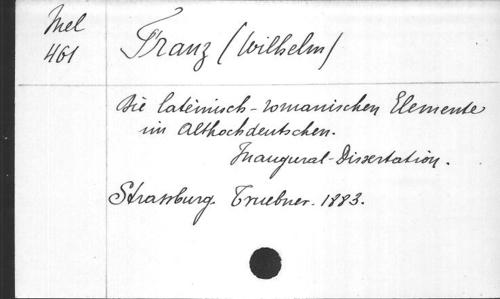 Mel
461
Franz (Wilhelm)
Die lateinisch-romanischen Elemente
im Althochdeutschen.
Inaugural-Dissertation.
Strassburg. Truebner. 1883.